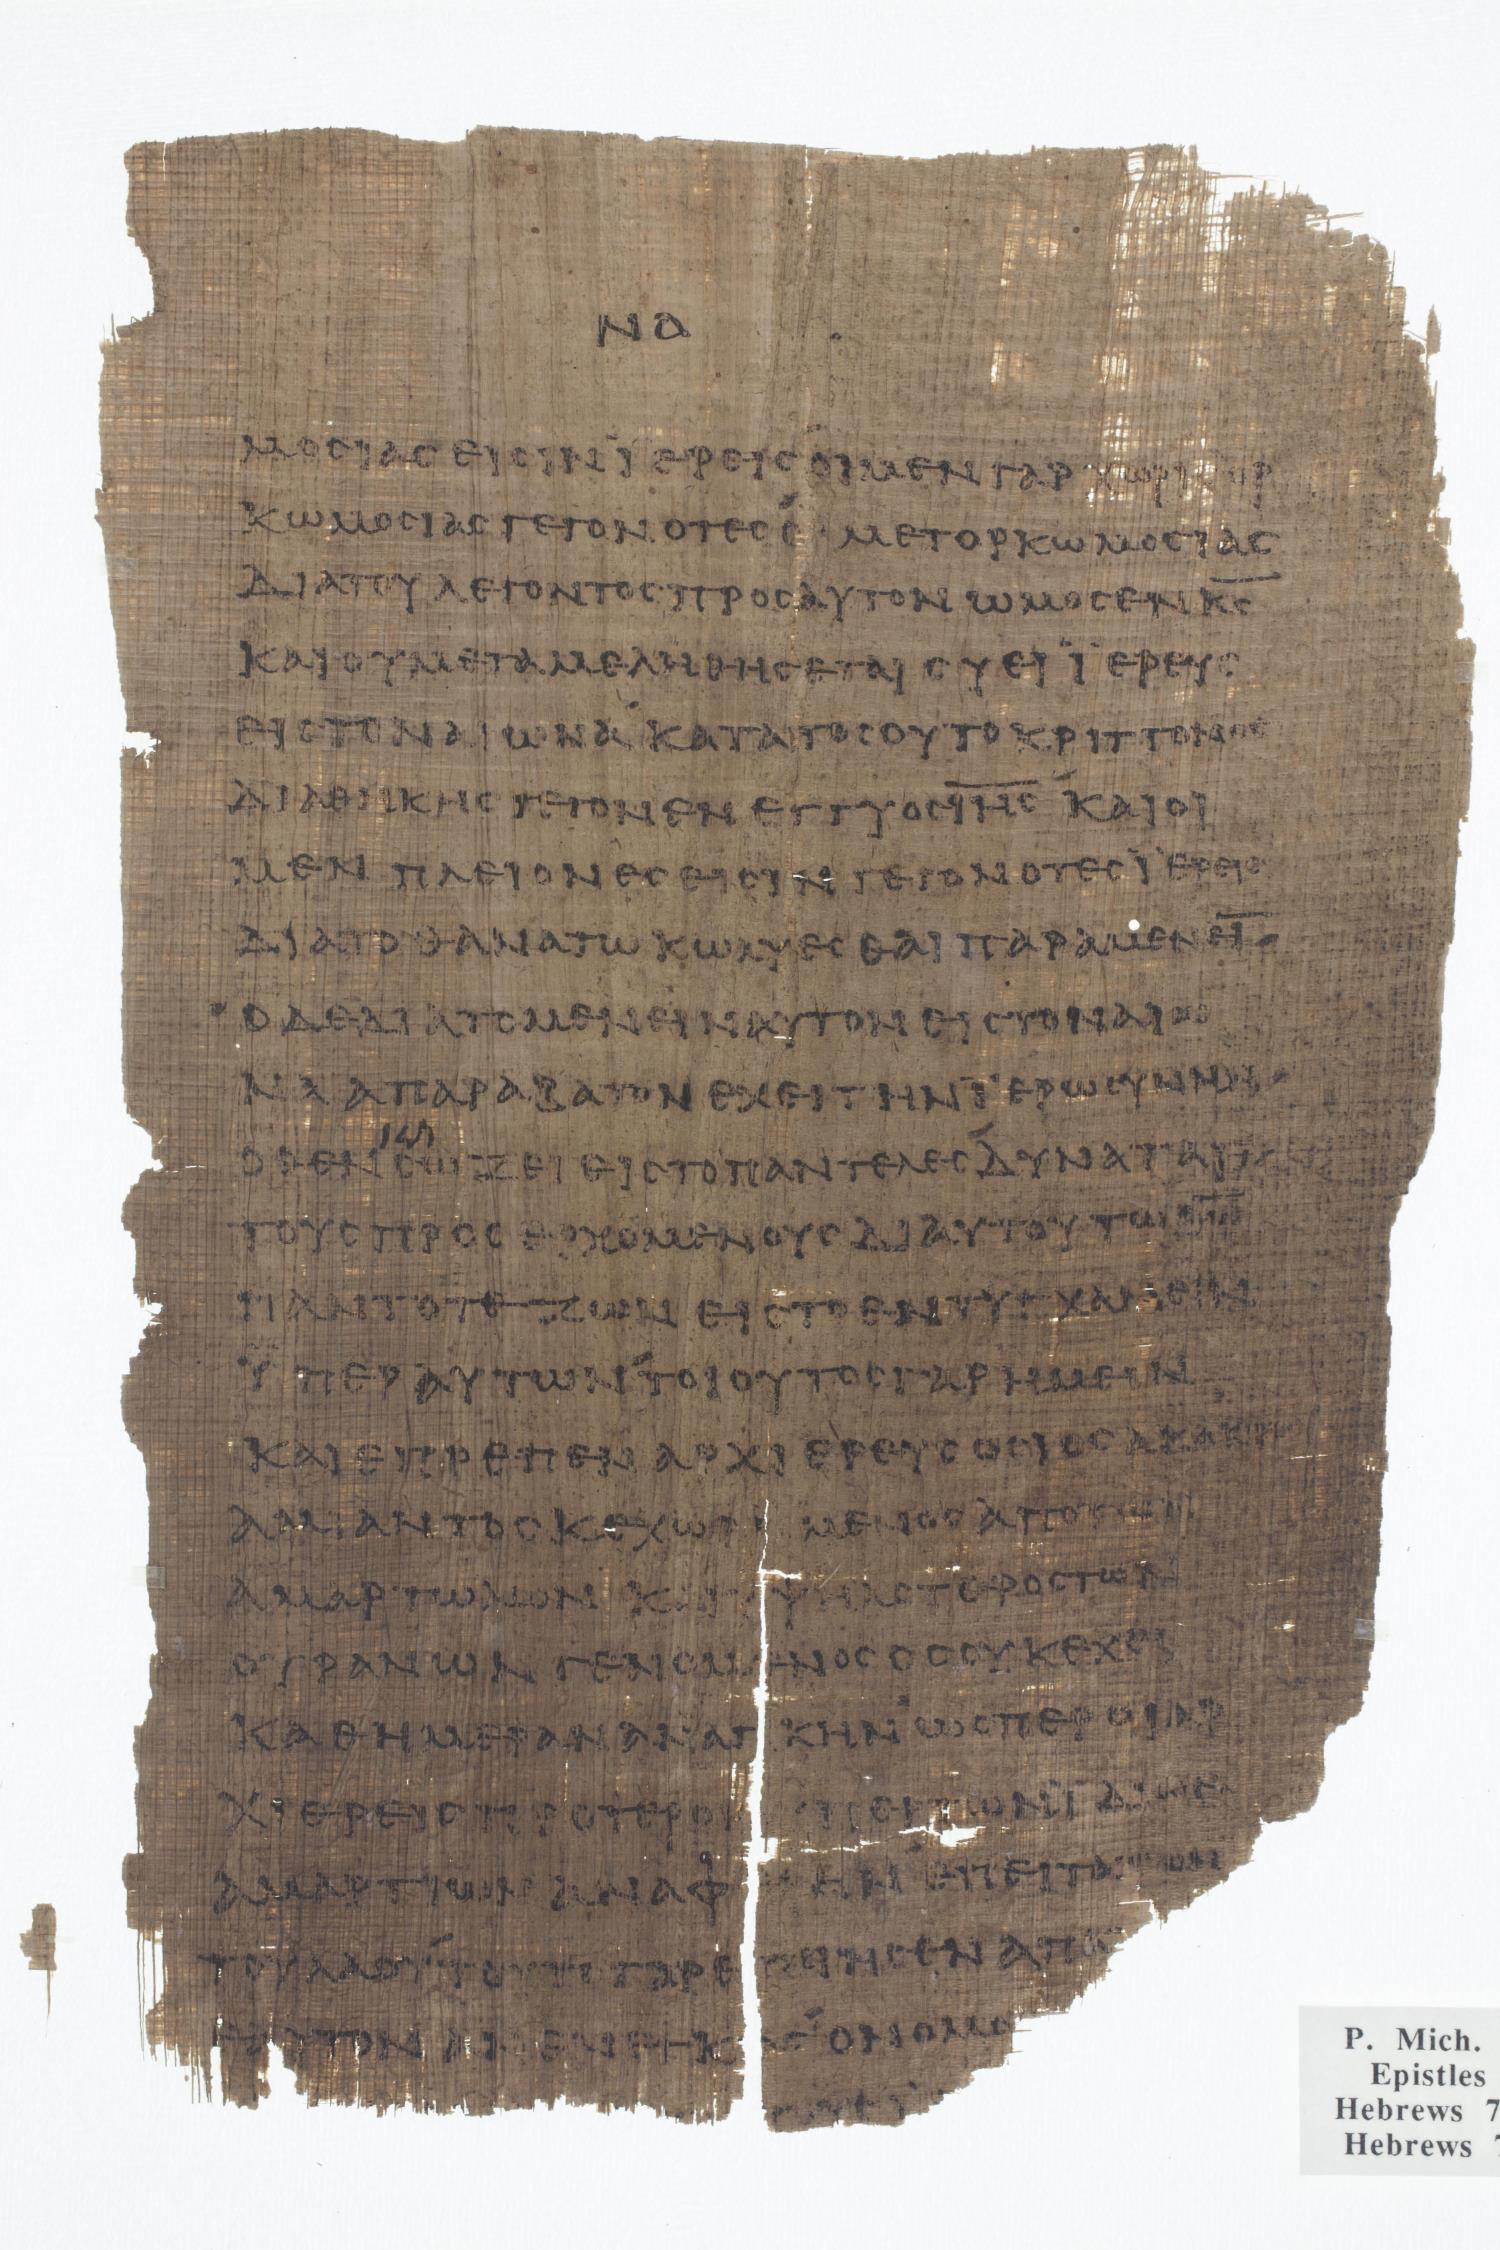 ΝΑ
ΜΟϹΙΑϹ ΕΙϹΙΝ ΪΕΡΕΙϹ ΟΙ ΜΕΝ ΓΑΡ ΧΩΡΙϹ ΟΡ
ΚΩΜΟϹΙΑϹ ΓΕΓΟΝΟΤΕϹ Ο ΜΕΤ ΟΡΚΩΜΟϹΙΑϹ
ΔΙΑ ΤΟΥ ΛΕΓΟΝΤΟϹ ΠΡΟϹ ΑΥΤΟΝ ΩΜΟϹΕΝ Κ̅Ϲ̅
ΚΑΙ ΟΥ ΜΕΤΑΜΕΛΗΘΗϹΕΤΑΙ ϹΥ ΕΙ ΪΕΡΕΥϹ
ΕΙϹ ΤΟΝ ΑΙΩΝΑ ΚΑΤΑ ΤΟϹΟΥΤΟ ΚΡΙΤΤΟΝΟϹ
ΔΙΑΘΗΚΗϹ ΓΕΓΟΝΕΝ ΕΓΓΥΟϹ Ι̅Η̅Ϲ̅ ΚΑΙ ΟΙ
ΜΕΝ ΠΛΕΙΟΝΕϹ ΕΙϹΙΝ ΓΕΓΟΝΟΤΕϹ ΪΕΡΕΙϹ
ΔΙΑ ΤΟ ΘΑΝΑΤΩ ΚΩΛΥΕϹΘΑΙ ΠΑΡΑΜΕΝΕΙ̅
Ο ΔΕ ΔΙΑ ΤΟ ΜΕΝΕΙΝ ΑΥΤΟΝ ΕΙϹ ΤΟΝ ΑΙΩ
ΝΑ ΑΠΑΡΑΒΑΤΟΝ ΕΧΕΙ ΤΗΝ ΪΕΡΩϹΥΝΗΝ
ΟΘΕΝ ϹΩΖΕΙ ΕΙϹ ΤΟ ΠΑΝΤΕΛΕϹ ΔΥΝΑΤΑΙ
ΤΟΥϹ ΠΡΟϹΕΡΧΟΜΕΝΟΥϹ ΔΙ ΑΥΤΟΥ ΤΩ Θ̅Ω̅
ΠΑΝΤΟΤΕ ΖΩΝ ΕΙϹ ΤΟ ΕΝΤΥΓΧΑΝΕΙΝ
ΫΠΕΡ ΑΥΤΩΝ ΤΟΙΟΥΤΟϹ ΓΑΡ ΗΜΕΙΝ
ΚΑΙ ΕΠΡΕΠΕΝ ΑΡΧΙΕΡΕΥϹ ΟϹΙΟϹ ΑΚΑΚΟϹ
ΑΜΙΑΝΤΟϹ ΚΕΧΩΡΙ ΜΕΝΟϹ ΑΠΟ ΤΩΝ
ΑΜΑΡΤΩΛΩΝ ΚΑΙ ΥΨΗΛΟΤΕΡΟϹ ΤΩΝ
ΟΥΡΑΝΩΝ ΓΕΝΟΜΕΝΟϹ ΟϹ ΟΥΚ ΕΧΕΙ
ΚΑΘ ΗΜΕΡΑΝ ΑΝΑΓΚΗΝ ΩϹΠΕΡ ΟΙ ΑΡ
ΧΙΕΡΕΙϹ ΠΡΟΤΕΡΟΝ ΥΠΕΡ ΤΩΝ ΪΔΙΩΝ
ΑΜΑΡΤΙΩΝ ΑΝΑΦ ΗΝ ΕΠΕΙΤΑ ΤΩΝ
ΤΟΥ ΛΑΟΥ ΤΟΥΤΟ ΓΑΡ Ε ΙΗϹΕΝ ΑΠΑ
ΕΑΥΤΟΝ ΑΝΕΝΕΓΚΑϹ Ο ΝΟΜΟ
P. Mich.
Epistles
Hebrews 7
Hebrews 7